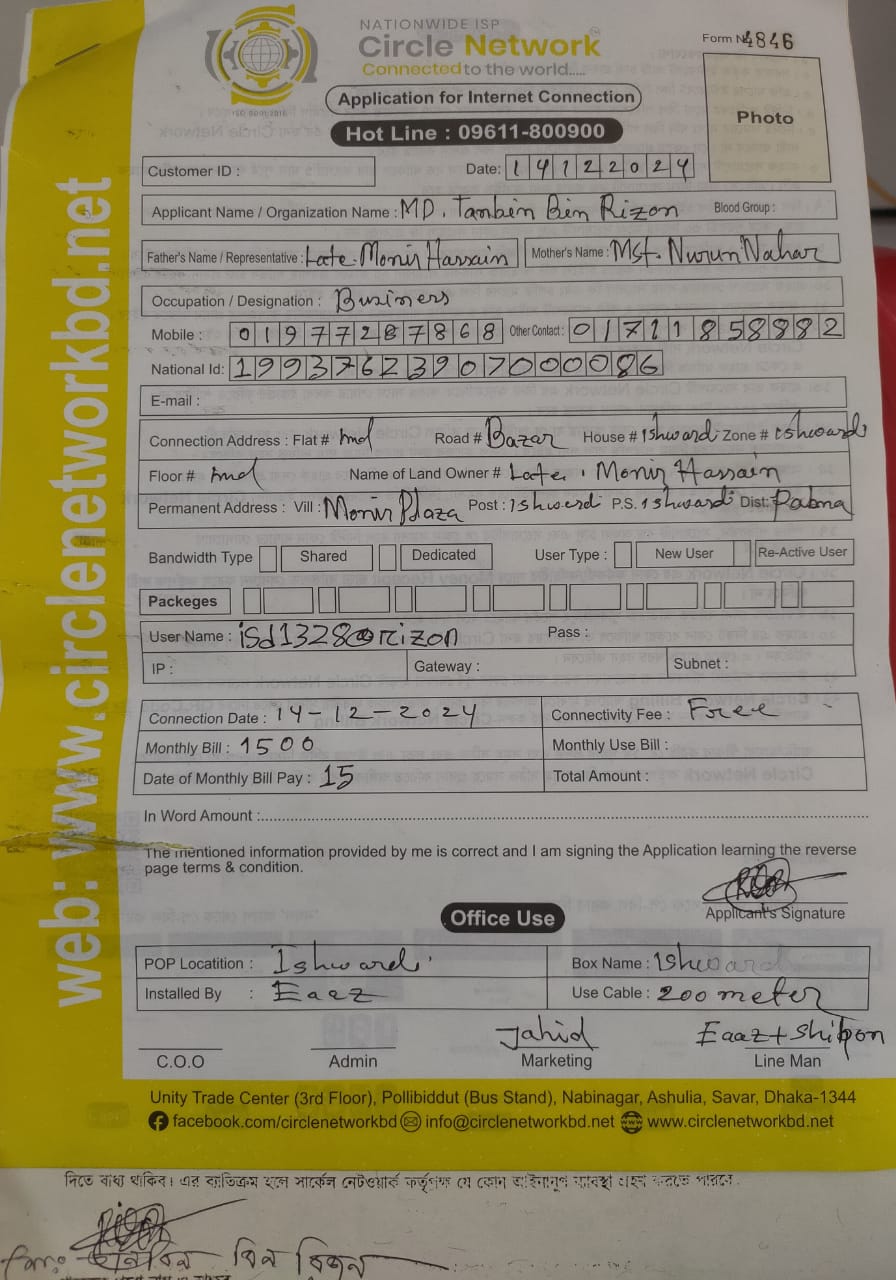 NATIONWIDE ISP
Circle Network
Connected to the world.....
ISO 9001:2015
Form № 4846
Application for Internet Connection
Photo
Hot Line : 09611-800900
Customer ID :
Date: 14122024
Applicant Name / Organization Name : MD. Tanbin Bin Rizon Blood Group :
Father's Name / Representative : Late. Monir Hassain Mother's Name : Mst. Nurun Nahar
Occupation / Designation : Business
Mobile : 01977287868 Other Contact : 01711858882
National Id: 19937623907000086
E-mail :
Connection Address : Flat # 2nd Road # Bazar House # Ishwardi Zone # Ishwardi
Floor # 2nd Name of Land Owner # Late. Monir Hassain
Permanent Address : Vill : Monir Plaza Post : Ishwardi P.S. Ishwardi Dist: Pabna
Bandwidth Type Shared Dedicated User Type : New User Re-Active User
Packeges
User Name : isd1328@rizon Pass :
IP : Gateway : Subnet :
Connection Date : 14-12-2024 Connectivity Fee : Free
Monthly Bill : 1500 Monthly Use Bill :
Date of Monthly Bill Pay : 15 Total Amount :
In Word Amount :
The mentioned information provided by me is correct and I am signing the Application learning the reverse
page terms & condition.
Applicant's Signature
Office Use
POP Locatition : Ishwardi Box Name : Ishward
Installed By : Eaaz Use Cable : 200 meter
Jahid Eaaz + Shipon
C.O.O Admin Marketing Line Man
Unity Trade Center (3rd Floor), Pollibiddut (Bus Stand), Nabinagar, Ashulia, Savar, Dhaka-1344
facebook.com/circlenetworkbd info@circlenetworkbd.net www.circlenetworkbd.net
web: www.circlenetworkbd.net
নিতে বাধ্য থাকিব। এর ব্যতিক্রম হলে সার্কেল নেটওয়ার্ক কর্তৃপক্ষ যে কোন আইনানুগ ব্যবস্থা গ্রহন করতে পারবে।
বিন রিজন